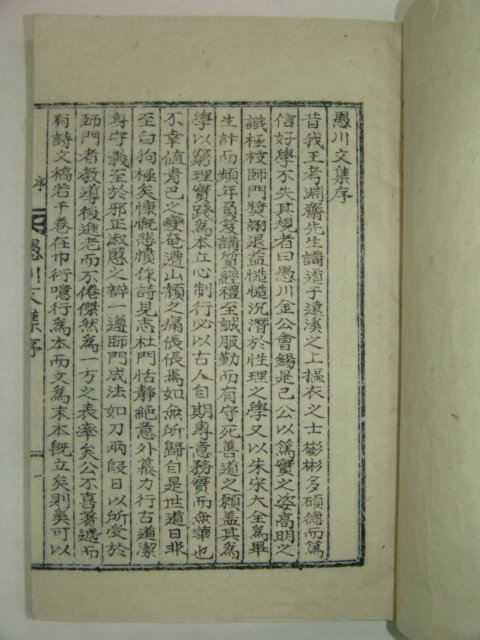 愚川文集序
昔我王考淵齋先生講道于遠溪之上摳衣之士彬彬多碩德而篤
信好學不失其規者曰愚川金公會錫是已公以篤實之姿高明之
識極被師門獎詡退益慥慥沉潛於性理之學又以朱宋大全爲畢
生計而頻年負笈講質經禮至誠服勤而有守死善道之願盖其爲
學以窮理實踐爲本立心制行必以古人自期專意務實而無華也
不幸値靑巳之變奄遭山頹之痛倀倀焉如無所歸自是世道日非
至白狗極矣慷慨悲憤作詩見志杜門恬靜絶意外慕力行古道潔
身守義至於邪正淑慝之辨一遵師門成法如刀兩段日以所受於
師門者敎導後進老而不倦傑然爲一方之表率矣公不喜著述而
有詩文稿若干卷在巾衍噫行爲本而文爲末本旣立矣則矣可以
序
愚川文集序
一